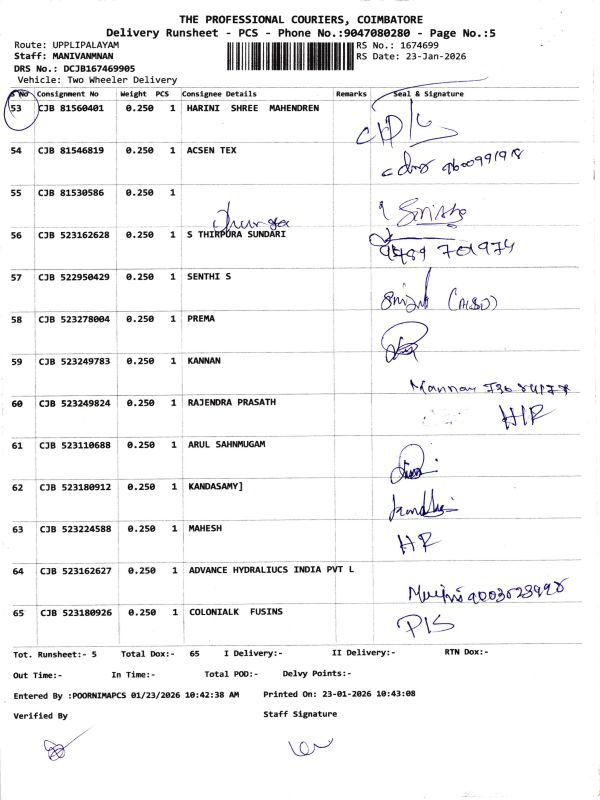 THE PROFESSIONAL COURIERS, COIMBATORE
Delivery Runsheet - PCS - Phone No.:9047080280 - Page No.:5
Route: UPPLIPALAYAM RS No.: 1674699
Staff: MANIVANMNAN RS Date: 23-Jan-2026
DRS No.: DCJB167469905
Vehicle: Two Wheeler Delivery
S No Consignment No Weight PCS Consignee Details Remarks Seal & Signature
53 CJB 81560401 0.250 1 HARINI SHREE MAHENDREN
54 CJB 81546819 0.250 1 ACSEN TEX
55 CJB 81530586 0.250 1
56 CJB 523162628 0.250 1 S THIRPURA SUNDARI
57 CJB 522950429 0.250 1 SENTHI S
58 CJB 523278004 0.250 1 PREMA
59 CJB 523249783 0.250 1 KANNAN
60 CJB 523249824 0.250 1 RAJENDRA PRASATH
HR
61 CJB 523110688 0.250 1 ARUL SAHNMUGAM
62 CJB 523180912 0.250 1 KANDASAMY]
63 CJB 523224588 0.250 1 MAHESH HR
64 CJB 523162627 0.250 1 ADVANCE HYDRALIUCS INDIA PVT L
65 CJB 523180926 0.250 1 COLONIALK FUSINS
Tot. Runsheet:- 5 Total Dox:- 65 I Delivery:- II Delivery:- RTN Dox:-
Out Time:- In Time:- Total POD:- Delvy Points:-
Entered By :POORNIMAPCS 01/23/2026 10:42:38 AM Printed On: 23-01-2026 10:43:08
Verified By Staff Signature